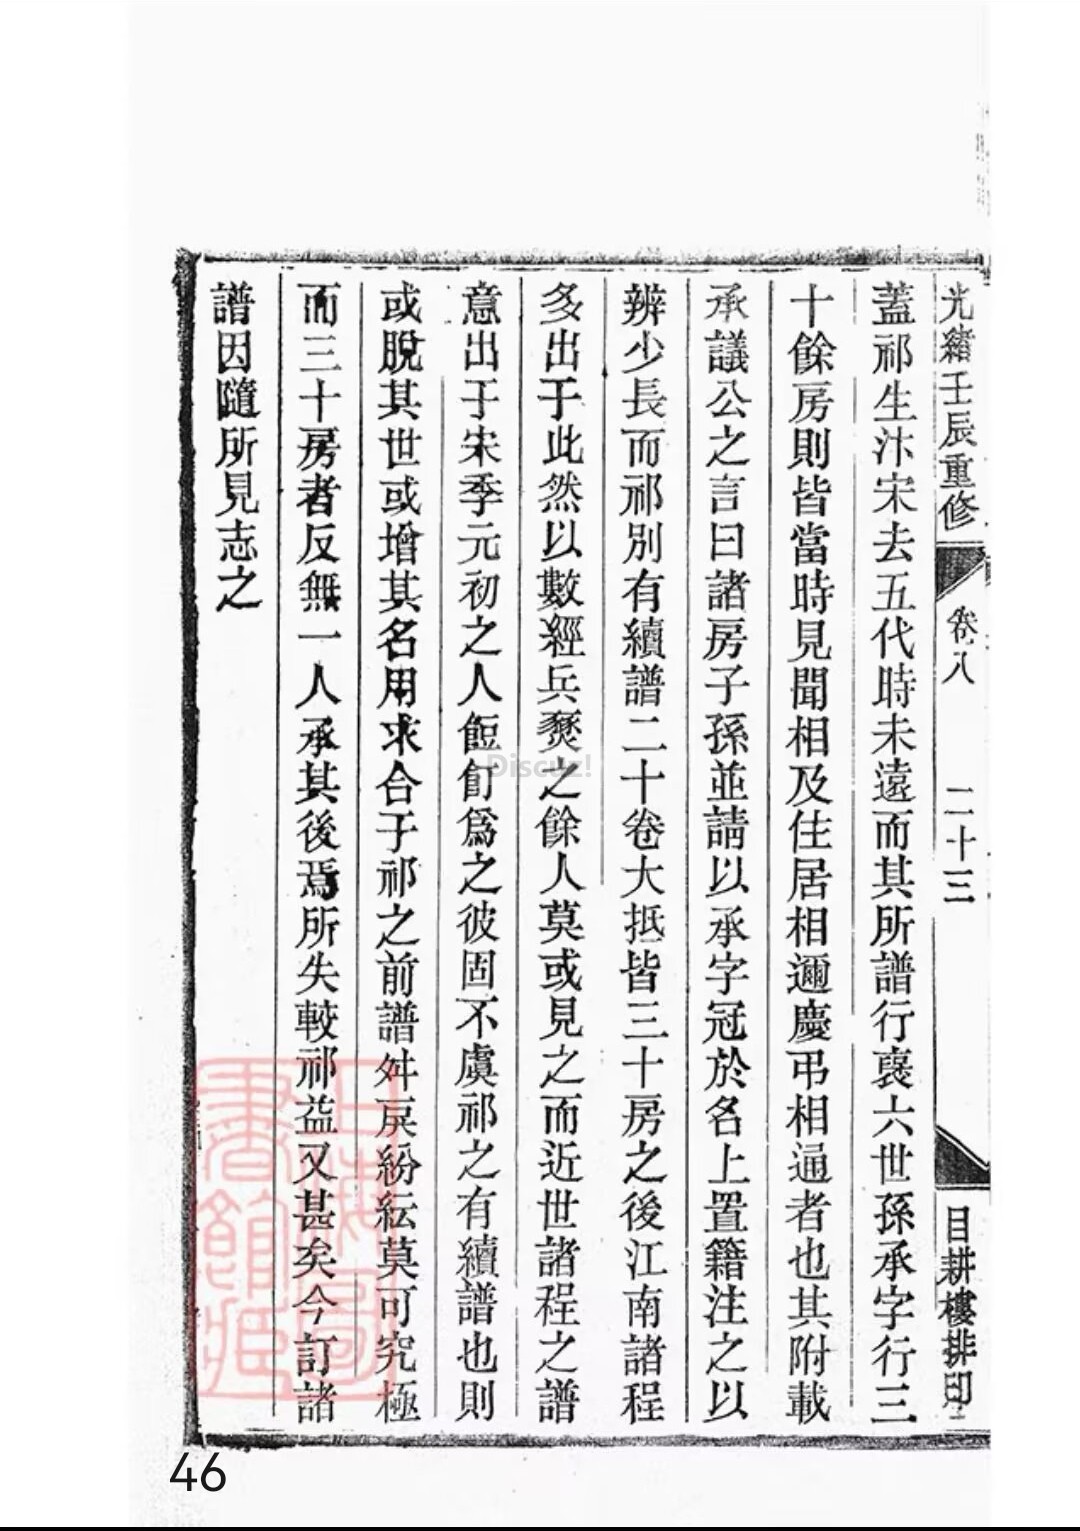 光緒壬辰重修 卷八 二十三 目耕樓排印
蓋祁生汴宋去五代時未遠而其所譜行裒六世孫承字行三
十餘房則皆當時見聞相及住居相邇慶弔相通者也其附載
承議公之言曰諸房子孫並請以承字冠於名上置籍注之以
辨少長而祁別有續譜二十卷大抵皆三十房之後江南諸程
多出于此然以數經兵燹之餘人莫或見之而近世諸程之譜
意出于宋季元初之人飣為之彼固不虞祁之有續譜也則
或脫其世或增其名用求合于祁之前譜舛戾紛紜莫可究極
而三十房者反無一人承其後焉所失較祁益又甚矣今訂諸
譜因隨所見志之
Discuz!
上海圖書館藏
46